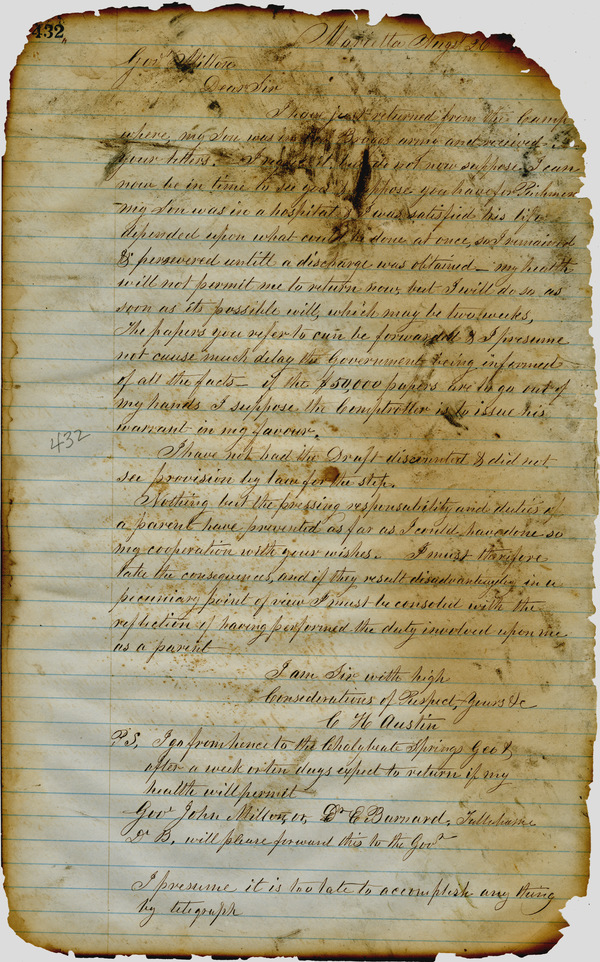 432
Marietta Augst 20
Gov.r Milton
Dear Sir
I have just returned from the Camp
where, my Son was in Braggs army and received
your letters. I do not now suppose I can
now be in time to see you suppose you have for Richmon
my Son was in a hospital & I was satisfied his life
depended upon what could be done at once, so I remained
& persevered untill a discharge was obtained — my health
will not permit me to return now, but I will do so as
soon as its possible will, which may be two weeks,
The papers you refer to can be forwarded & I presume
not cause much delay the Government being informed
of all the facts — if the $50,000 papers are to go out of
my hands I suppose the Comptroller is to issue his
warrant in my favour.
432
I have not had the Draft discounted & did not
see provision by law for the step.
Nothing but the pressing responsability and duties of
a parent have prevented as far as I could have done so
my cooperation with your wishes. I must therefore
take the consequences, and if they result disadvantagely in a
pecuniary point of view I must be consoled with the
reflection of having performed the duty involved upon me
as a parent
I am Sir with high
Considerations of Respect, Yours &c
C H Austin
P.S. I go from hence to the Chalybeate Springs Geo &
after a week or ten days expect to return if my
health will permit
Gov.r John Milton, or, Dr E Barnard, Tallahassee
Dr B. will please forward this to the Gov.r
I presume it is too late to accomplish any thing
by telegraph